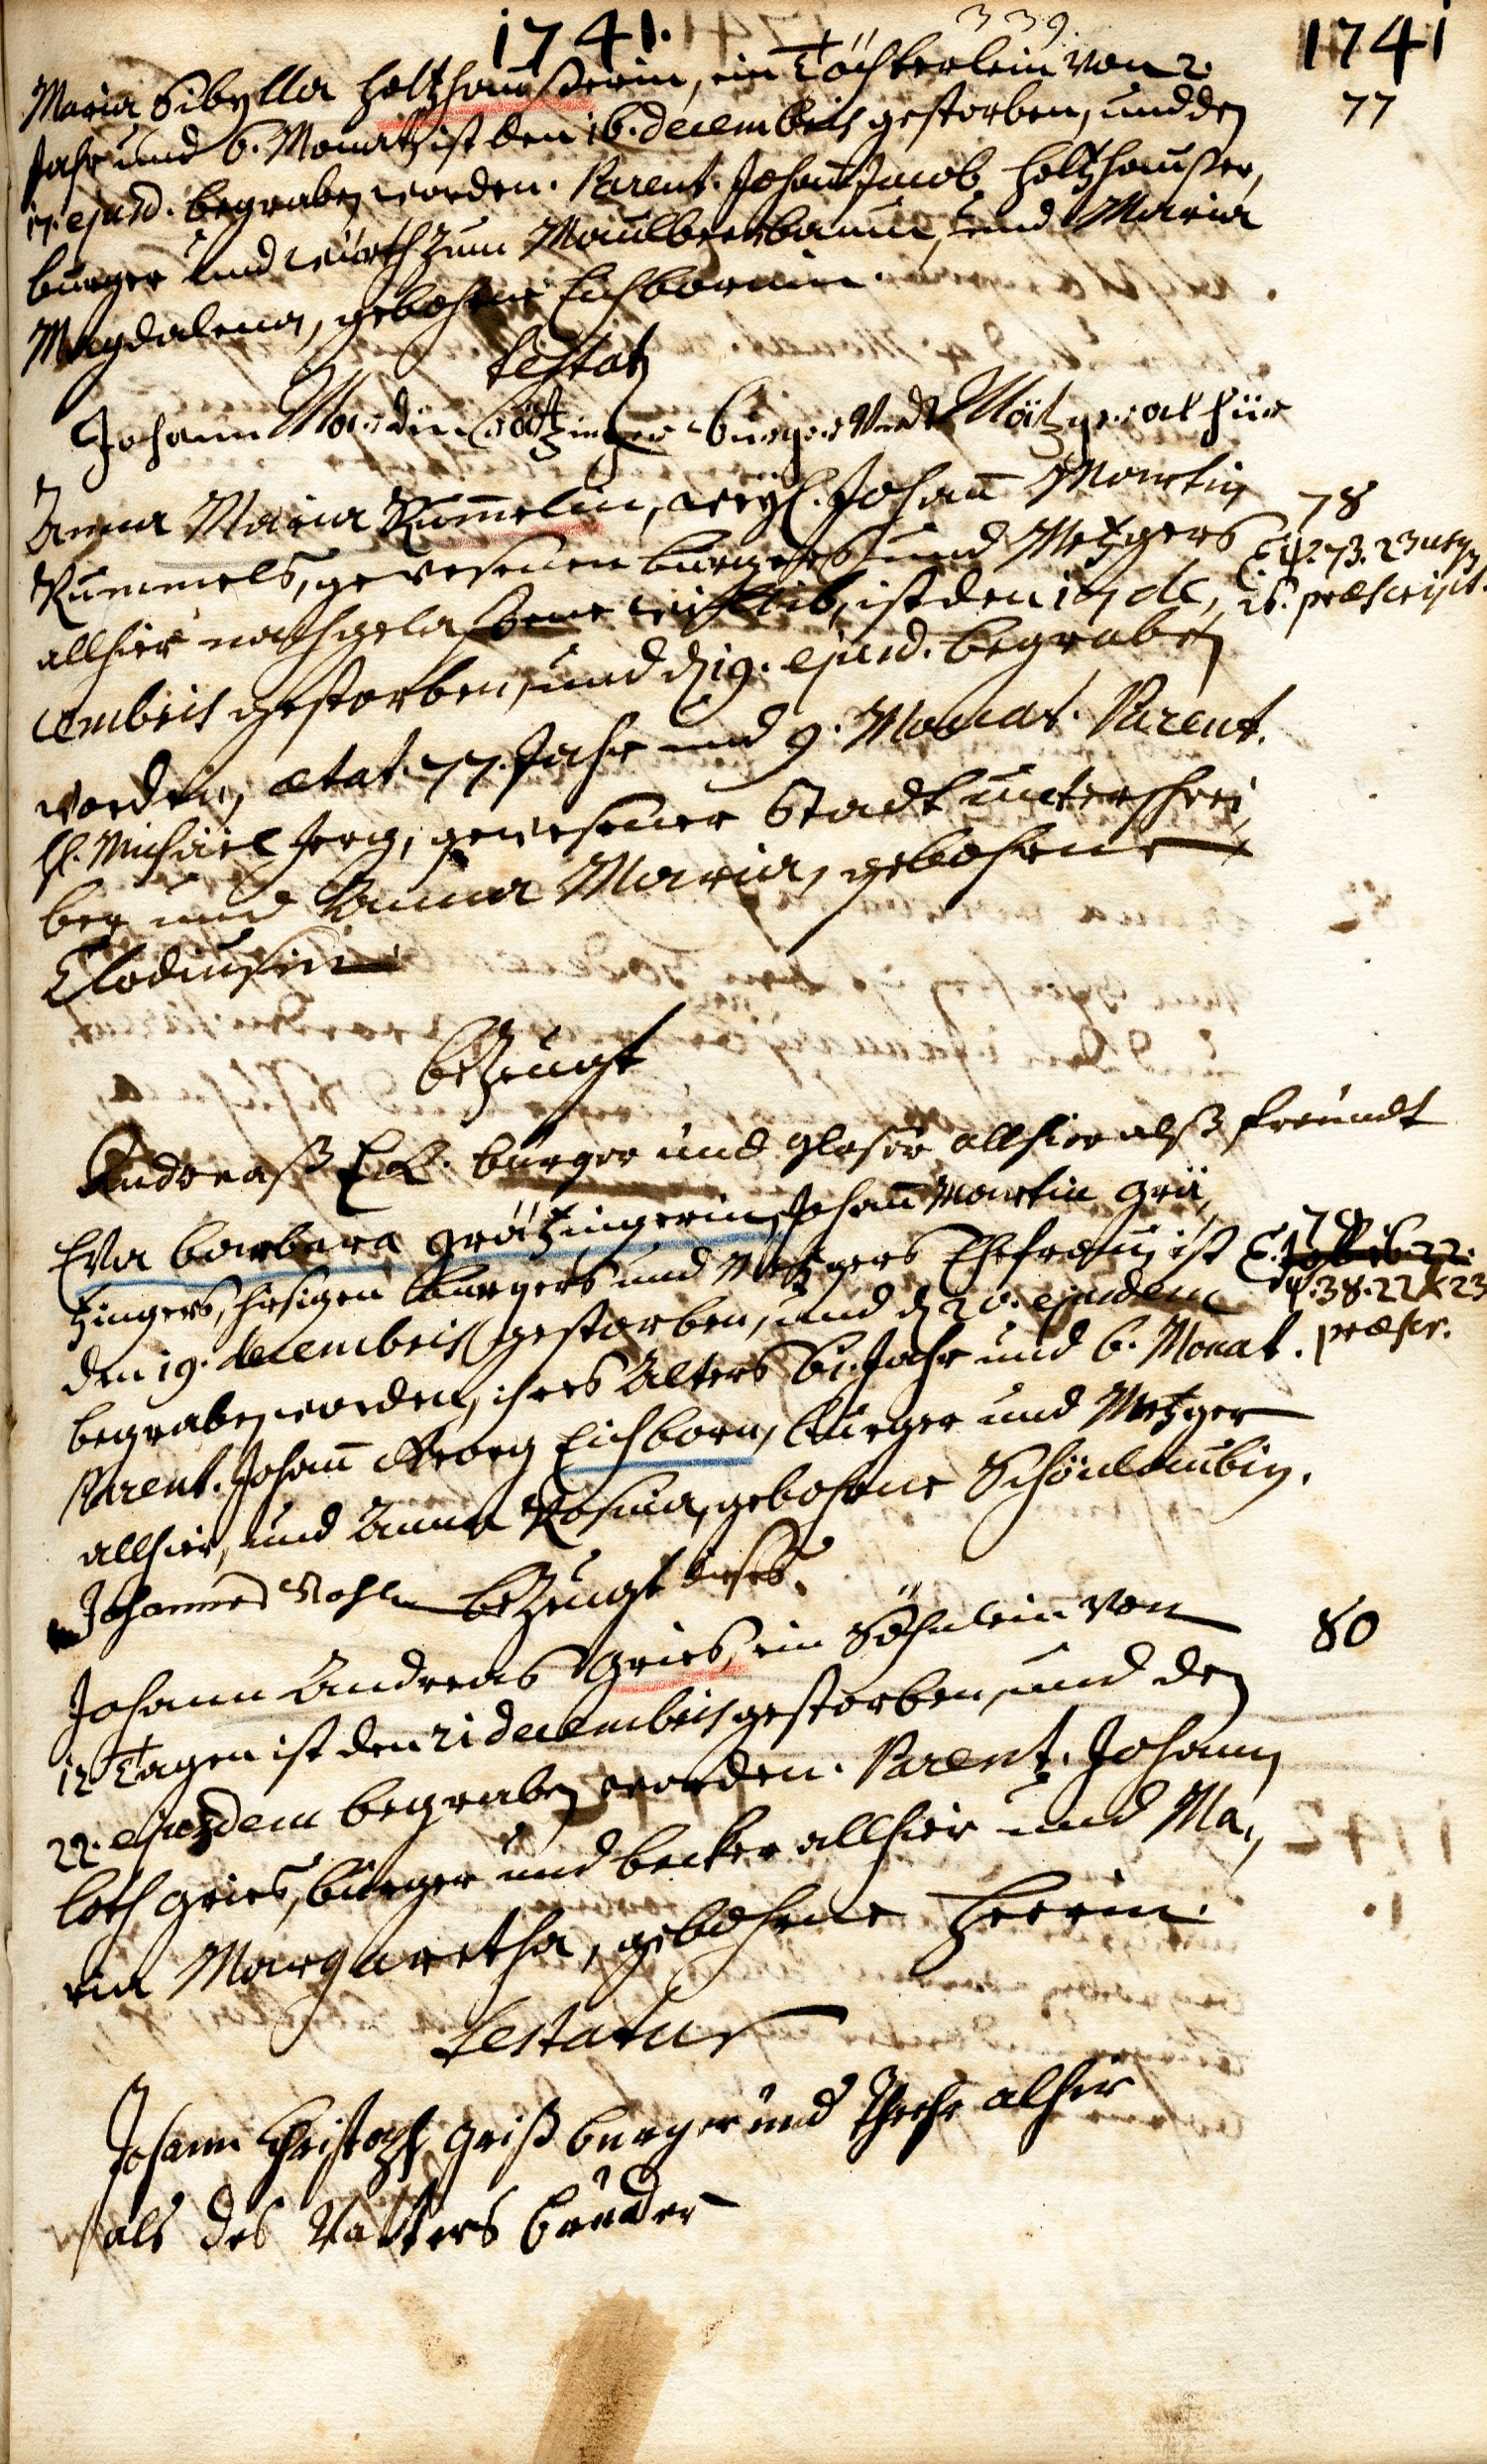 1741. 339. 1741
Maria Sibylla Holtzhaußerin, ein Töchterlein von 2. 77
Jahr und 6. Monath ist den 16. decembris gestorben, und den
17. ejusd. begraben worden. Parent. Johann Jacob Holtzhaußer,
burger und Würth zum Maulbeerbaum, und Maria
Magdalena, gebohrne Eichbornin.
testat
Johann Mardin Grötzinger burger Undt Mätzger alhier
Anna Maria Rummelin, weyl. Johann Martin 78
Rummels, gewesenen burgers und Metzgers ψ. 73. 23 usq
allhier nachgelaßene wittib, ist den 17 de, 26. præscript.
cembris gestorben, und d 19. ejusd. begraben
worden, ætat. 77. Jahr und 9. Monat. Parent.
H. Michael Jerg, gewesener Stadtunterschrei,
ber und Anna Maria, gebohrne
Clodiusin
bezeugt
Andreaß Eck. burger und glaser allhier alß freundt
Eva barbara Grötzingerin, Johann Martin Grä, 79
tzingers, hiesigen burgers und Metzgers Ehefrau, ist
den 19. decembris gestorben, und d 20. ejusdem ψ. 38. 22 & 23
begraben worden, ihres Alters 61. Jahr und 6. Monat. præscr.
Parent. Johann Georg Eichborn, burger und Metzger
allhier, und Anna Rosina, gebohrne Schönlaubin.
Johannes bezeugt dises.
Johann Andreas Gries, ein Söhnlein von 80
12 Tagen ist den 21 decembris gestorben, und den
22. ejusdem begraben worden. Parent. Johann
Loth Gries, burger und becker allhier und Ma,
ria Margaretha, gebohrne Herrin.
testatur
Johann Christoph Griß burger und alhir
als des Vatters bruder